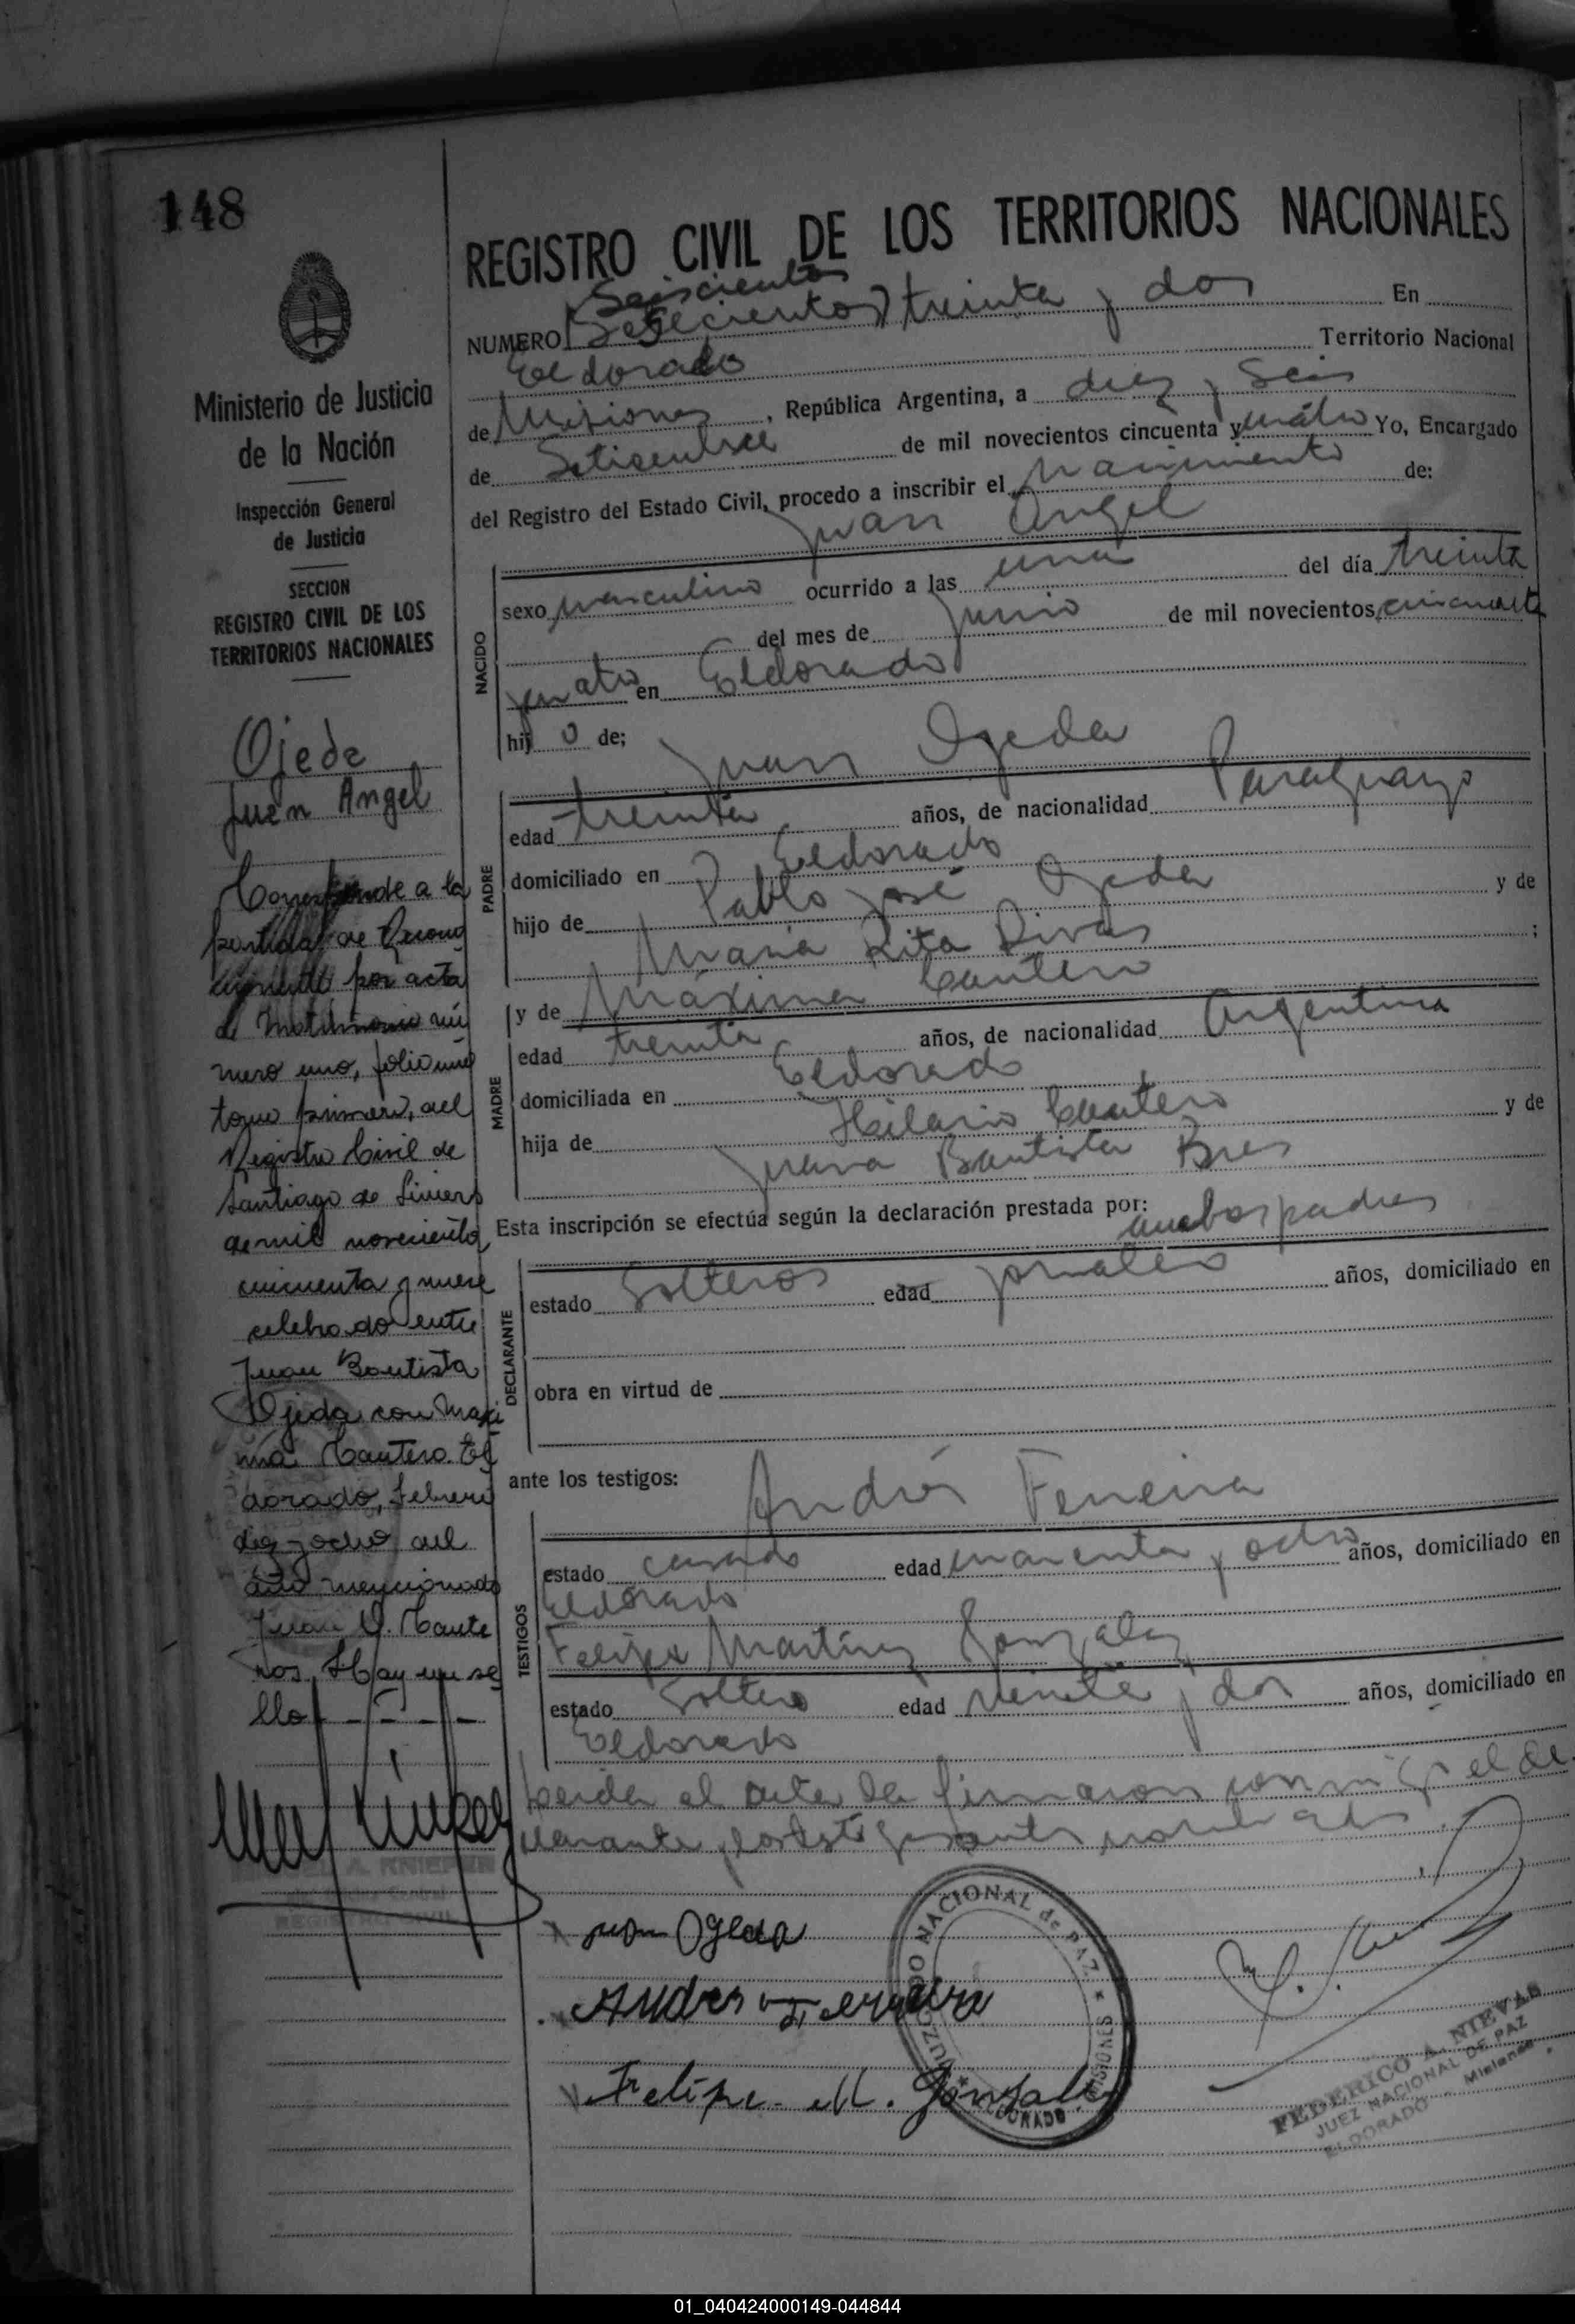 148
REGISTRO CIVIL DE LOS TERRITORIOS NACIONALES
Ministerio de Justicia
de la Nación
Inspección General
de Justicia
SECCION
REGISTRO CIVIL DE LOS
TERRITORIOS NACIONALES
Ojeda
Juan Angel
Corresponde a la
partida de
por acta
de Matrimonio nú
mero uno, folio uno
tomo primero, del
Registro Civil de
Santiago de Liniers
de mil novecientos
cincuenta y nueve
celebrado entre
Juan Bautista
Ojeda con Maxi
ma Cantero. El
dorado, febrero
diez y ocho del
año mencionado
Juan
Hay un se
llo
A. KNIEPER
REGISTRO CIVIL
Seiscientos
NUMERO (Setecientos) treinta y dos En
Eldorado Territorio Nacional
de Misiones, República Argentina, a diez y seis
de Setiembre de mil novecientos cincuenta y cuatro Yo, Encargado
del Registro del Estado Civil, procedo a inscribir el nacimiento de:
Juan Angel
NACIDO
sexo masculino ocurrido a las una del día treinta
del mes de junio de mil novecientos cincuenta
y cuatro en Eldorado
hijo de;
Juan Ojeda
PADRE
edad treinta años, de nacionalidad Paraguayo
domiciliado en Eldorado
hijo de Pablo José Ojeda y de
Maria Rita Rivas ;
y de Máxima Cantero
MADRE
edad treinta años, de nacionalidad Argentina
domiciliada en Eldorado
hija de Hilario Cantero y de
Juana Bautista Bres
Esta inscripción se efectúa según la declaración prestada por: ambos padres
DECLARANTE
estado Solteros edad jornalero años, domiciliado en
obra en virtud de
ante los testigos: Andrés Ferreira
TESTIGOS
estado casado edad cuarenta y ocho años, domiciliado en
Eldorado
Felipe Martínez González
estado Soltero edad veinte y dos años, domiciliado en
Eldorado
Leida el acta la firmaron conmigo el de
clarante y los testigos
Juan Ogeda
Andres Ferreira
Felipe M. Gonsales
JUZGADO NACIONAL de PAZ
ELDORADO MISIONES
FEDERICO A. NIEVAS
JUEZ NACIONAL DE PAZ
ELDORADO - Misiones
01_040424000149-044844